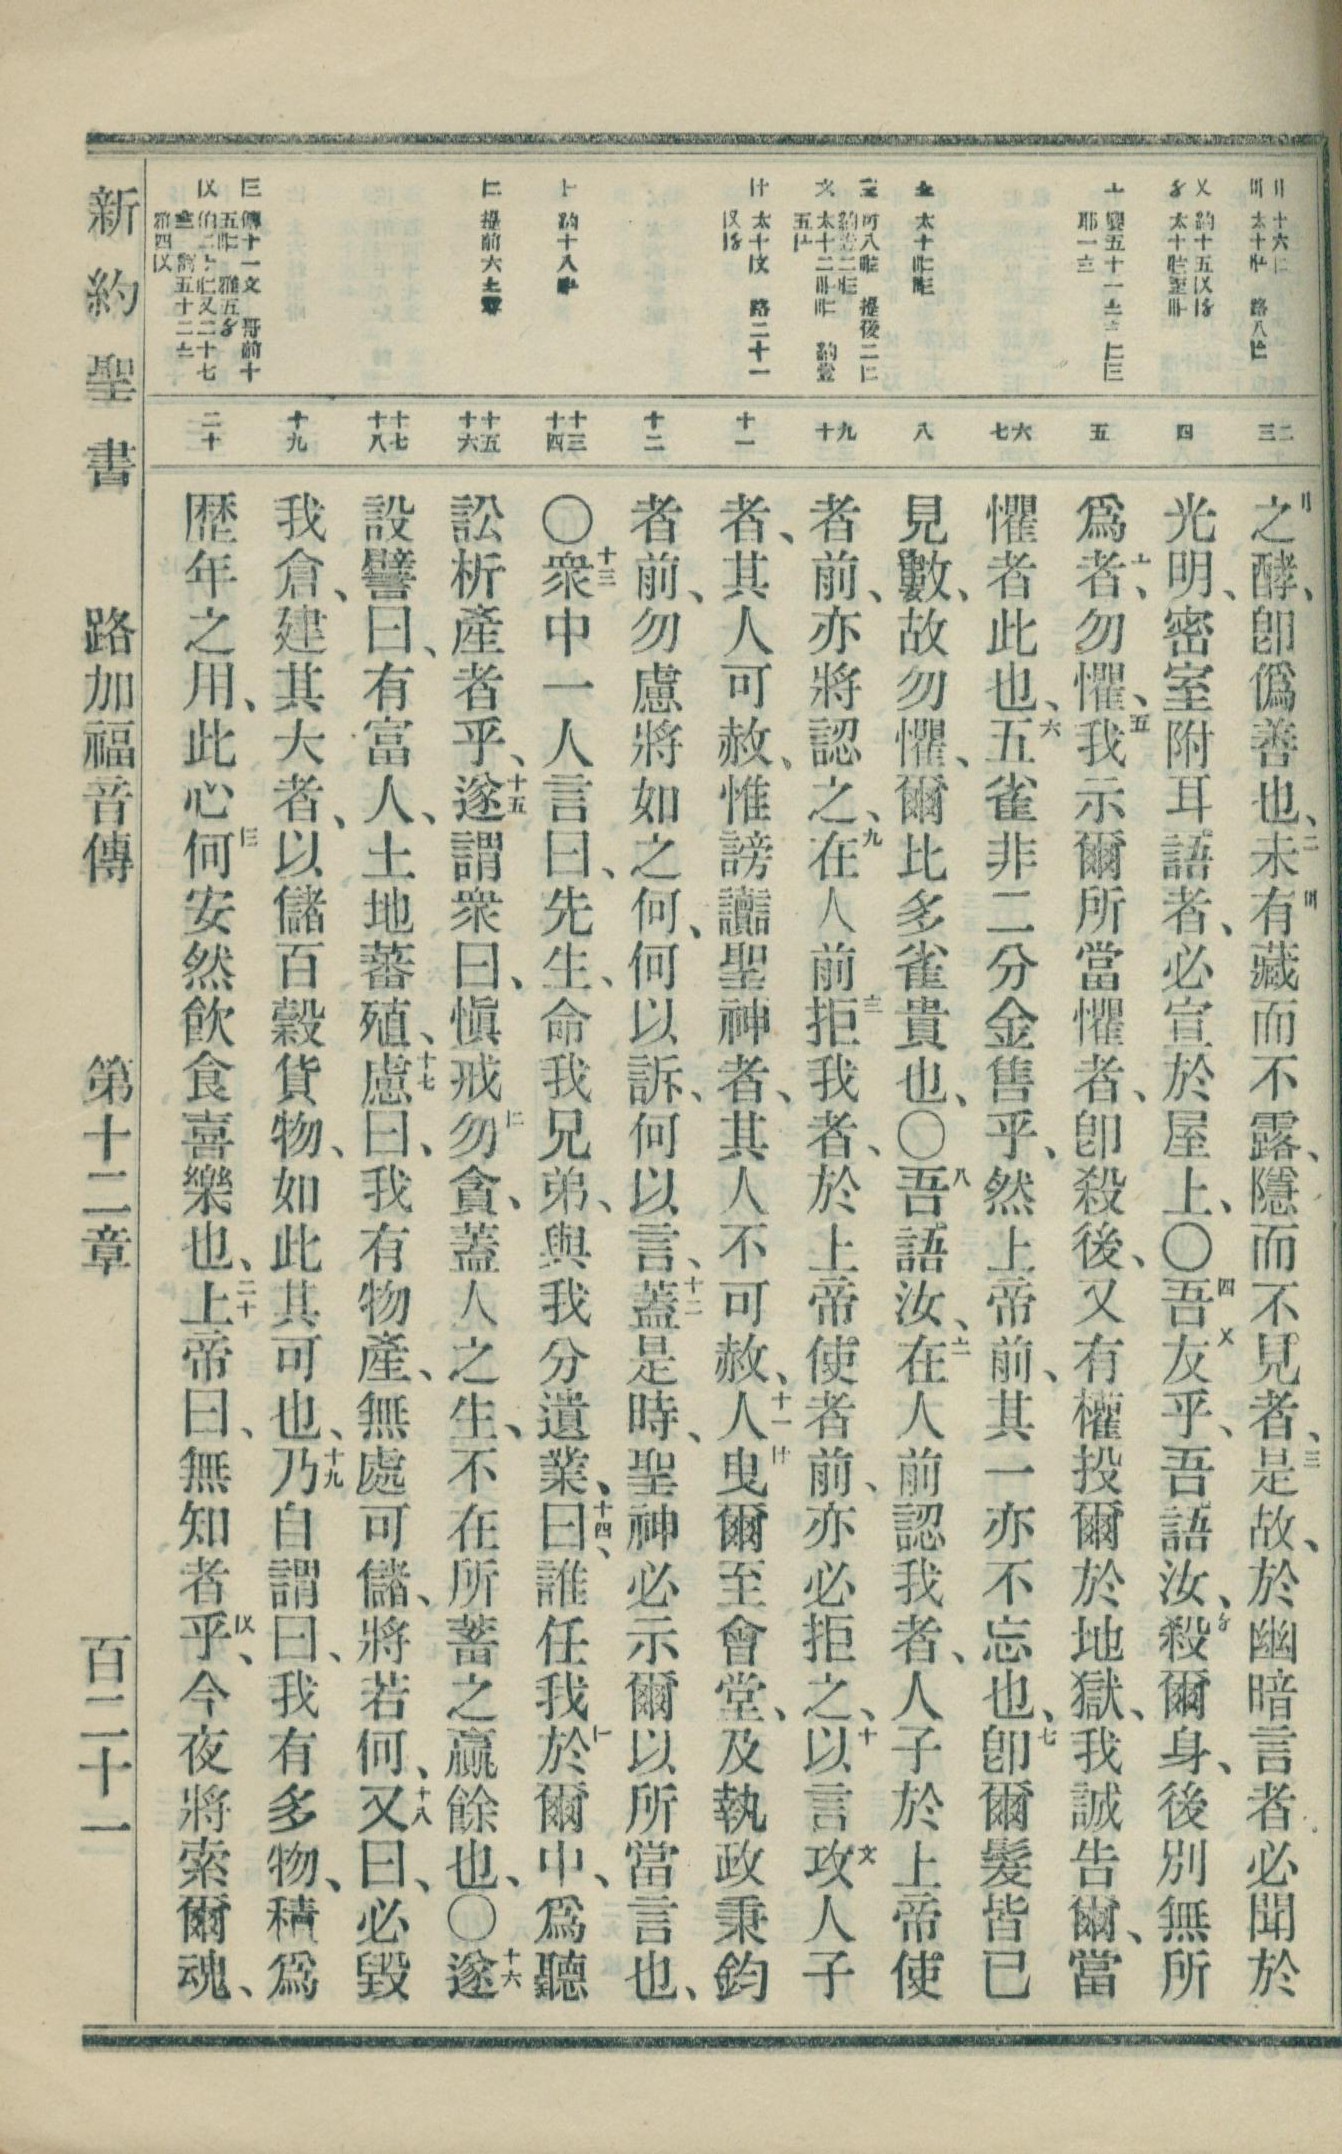 之酵、卽僞善也、二未有藏而不露、隱而不見者、三是故、於幽暗言者必聞於
光明、密室附耳語者、必宣於屋上、〇四吾友乎、吾語汝、殺爾身、後別無所
爲者、勿懼、五我示爾所當懼者、卽殺後、又有權投爾於地獄、我誠告爾、當
懼者此也、六五雀非二分金售乎、然上帝前、其一亦不忘也、七卽爾髮皆已
見數、故勿懼、爾比多雀貴也、〇八吾語汝、在人前認我者、人子於上帝使
者前、亦將認之、九在人前拒我者、於上帝使者前、亦必拒之、十以言攻人子
者、其人可赦、惟謗讟聖神者、其人不可赦、十一人曳爾至會堂、及執政秉鈞
者前、勿慮將如之何、何以訴、何以言、十二蓋是時、聖神必示爾以所當言也、
〇十三衆中一人言曰、先生、命我兄弟、與我分遺業、十四曰、誰任我於爾中、爲聽
訟析產者乎、十五遂謂衆曰、愼戒勿貪、蓋人之生、不在所蓄之贏餘也、〇十六遂
設譬曰、有富人、土地蕃殖、十七慮曰、我有物產、無處可儲、將若何、十八又曰、必毀
我倉、建其大者、以儲百穀貨物、如此其可也、十九乃自謂曰、我有多物、積爲
歷年之用、此心何安然飮食喜樂也、二十上帝曰、無知者乎、今夜將索爾魂、
二三
四
五
六七
八
九十
十一
十二
十三十四
十五十六
十七十八
十九
二十
新約聖書　路加福音傳　第十二章　百二十一